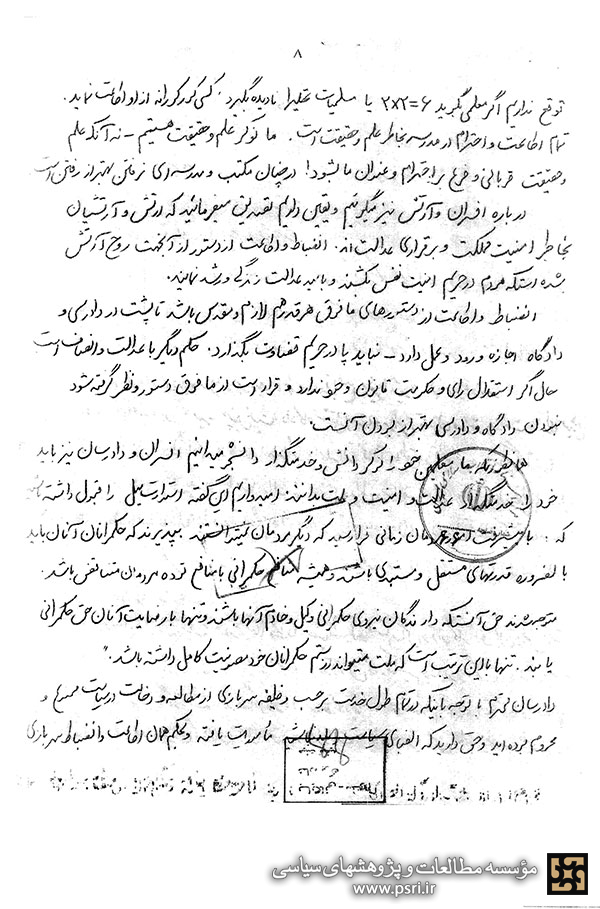 ۸
توقع نداریم اگر معلمی بگوید ۶=۲×۲ یا مسلمیات عقلی را نادیده بگیرد کسی کورکورانه از او اطاعت نماید.
تمام اطاعت و احترام در مدرسه بخاطر علم و حقیقت است. ما نوکر علم و حقیقت هستیم - نه آنکه علم
و حقیقت قربانی و فرع بر احترام و عنوان ما بشود! در چنان مکتب و مدرسه‌ای نرفتن بهتر از رفتن است
درباره افسران و ارتش نیز میگوئیم و یقین داریم تصدیق میفرمائید که ارتش و ارتشیان
بخاطر امنیت مملکت و برقراری عدالت‌اند. انضباط و اطاعت از دستور از آنجهت روح ارتش
شده است که مردم در حریم امنیت نفس بکشند و با امید عدالت زندگی و رشد نمایند.
انضباط و اطاعت از دستورهای مافوق هر قدر هم لازم و مقدس باشد تا پشت در دادرسی و
دادگاه اجازه ورود و عمل دارد - نباید پا در حریم قضاوت بگذارد. حکم دیگر با عدالت و انصاف است
حال اگر استقلال رای و حکومت قانون وجود ندارد و قرار است از مافوق دستور و نظر گرفته شود
نبودن دادگاه و دادرسی بهتر از بودن آنست.
همانطور که ما معلمین خود را نوکر دانش و خدمتگذار دانشجو میدانیم افسران و دادرسان نیز باید
خود را خدمتگذار عدالت و امنیت و ملت بدانند. امیدواریم این گفته استوارت میل را قبول داشته
که: با پیشرفت امور مردمان زمانی فرا رسید که دیگر مردمان نمیتوانستند بپذیرند که حکمرانان آنان باید
بالضروره قدرتهای مستقل و مستبدی باشند و همیشه منافع حکمرانی با منافع توده مردمان متناقض باشد.
متوجه شدند حق آنست که دارندگان نیروی حکمرانی وکیل و خادم آنها باشند و تنها با رضایت آنان حق حکمرانی
یابند. تنها با این ترتیب است که ملت میتواند از ستم حکمرانان خود مصونیت کامل داشته باشد."
دادرسان محترم با توجه باینکه در تمام طول خدمت برحسب وظیفه سربازی از مطالعه و دخالت در سیاست ممنوع و
محروم بوده‌اید و حق دارید که الفبای سیاست مأموریت یافته و بحکم همان اطاعت و انضباط سربازی
مؤسسه مطالعات و پژوهشهای سیاسی
www.psri.ir